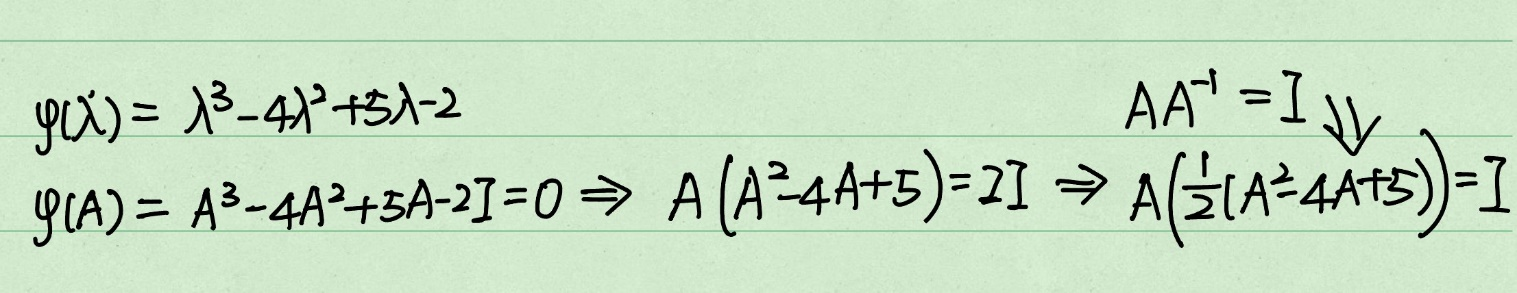 φ(λ) = λ³-4λ²+5λ-2 AA⁻¹ = I ⇓
φ(A) = A³-4A²+5A-2I=0 ⇒ A(A²-4A+5)=2I ⇒ A(½(A²-4A+5))=I